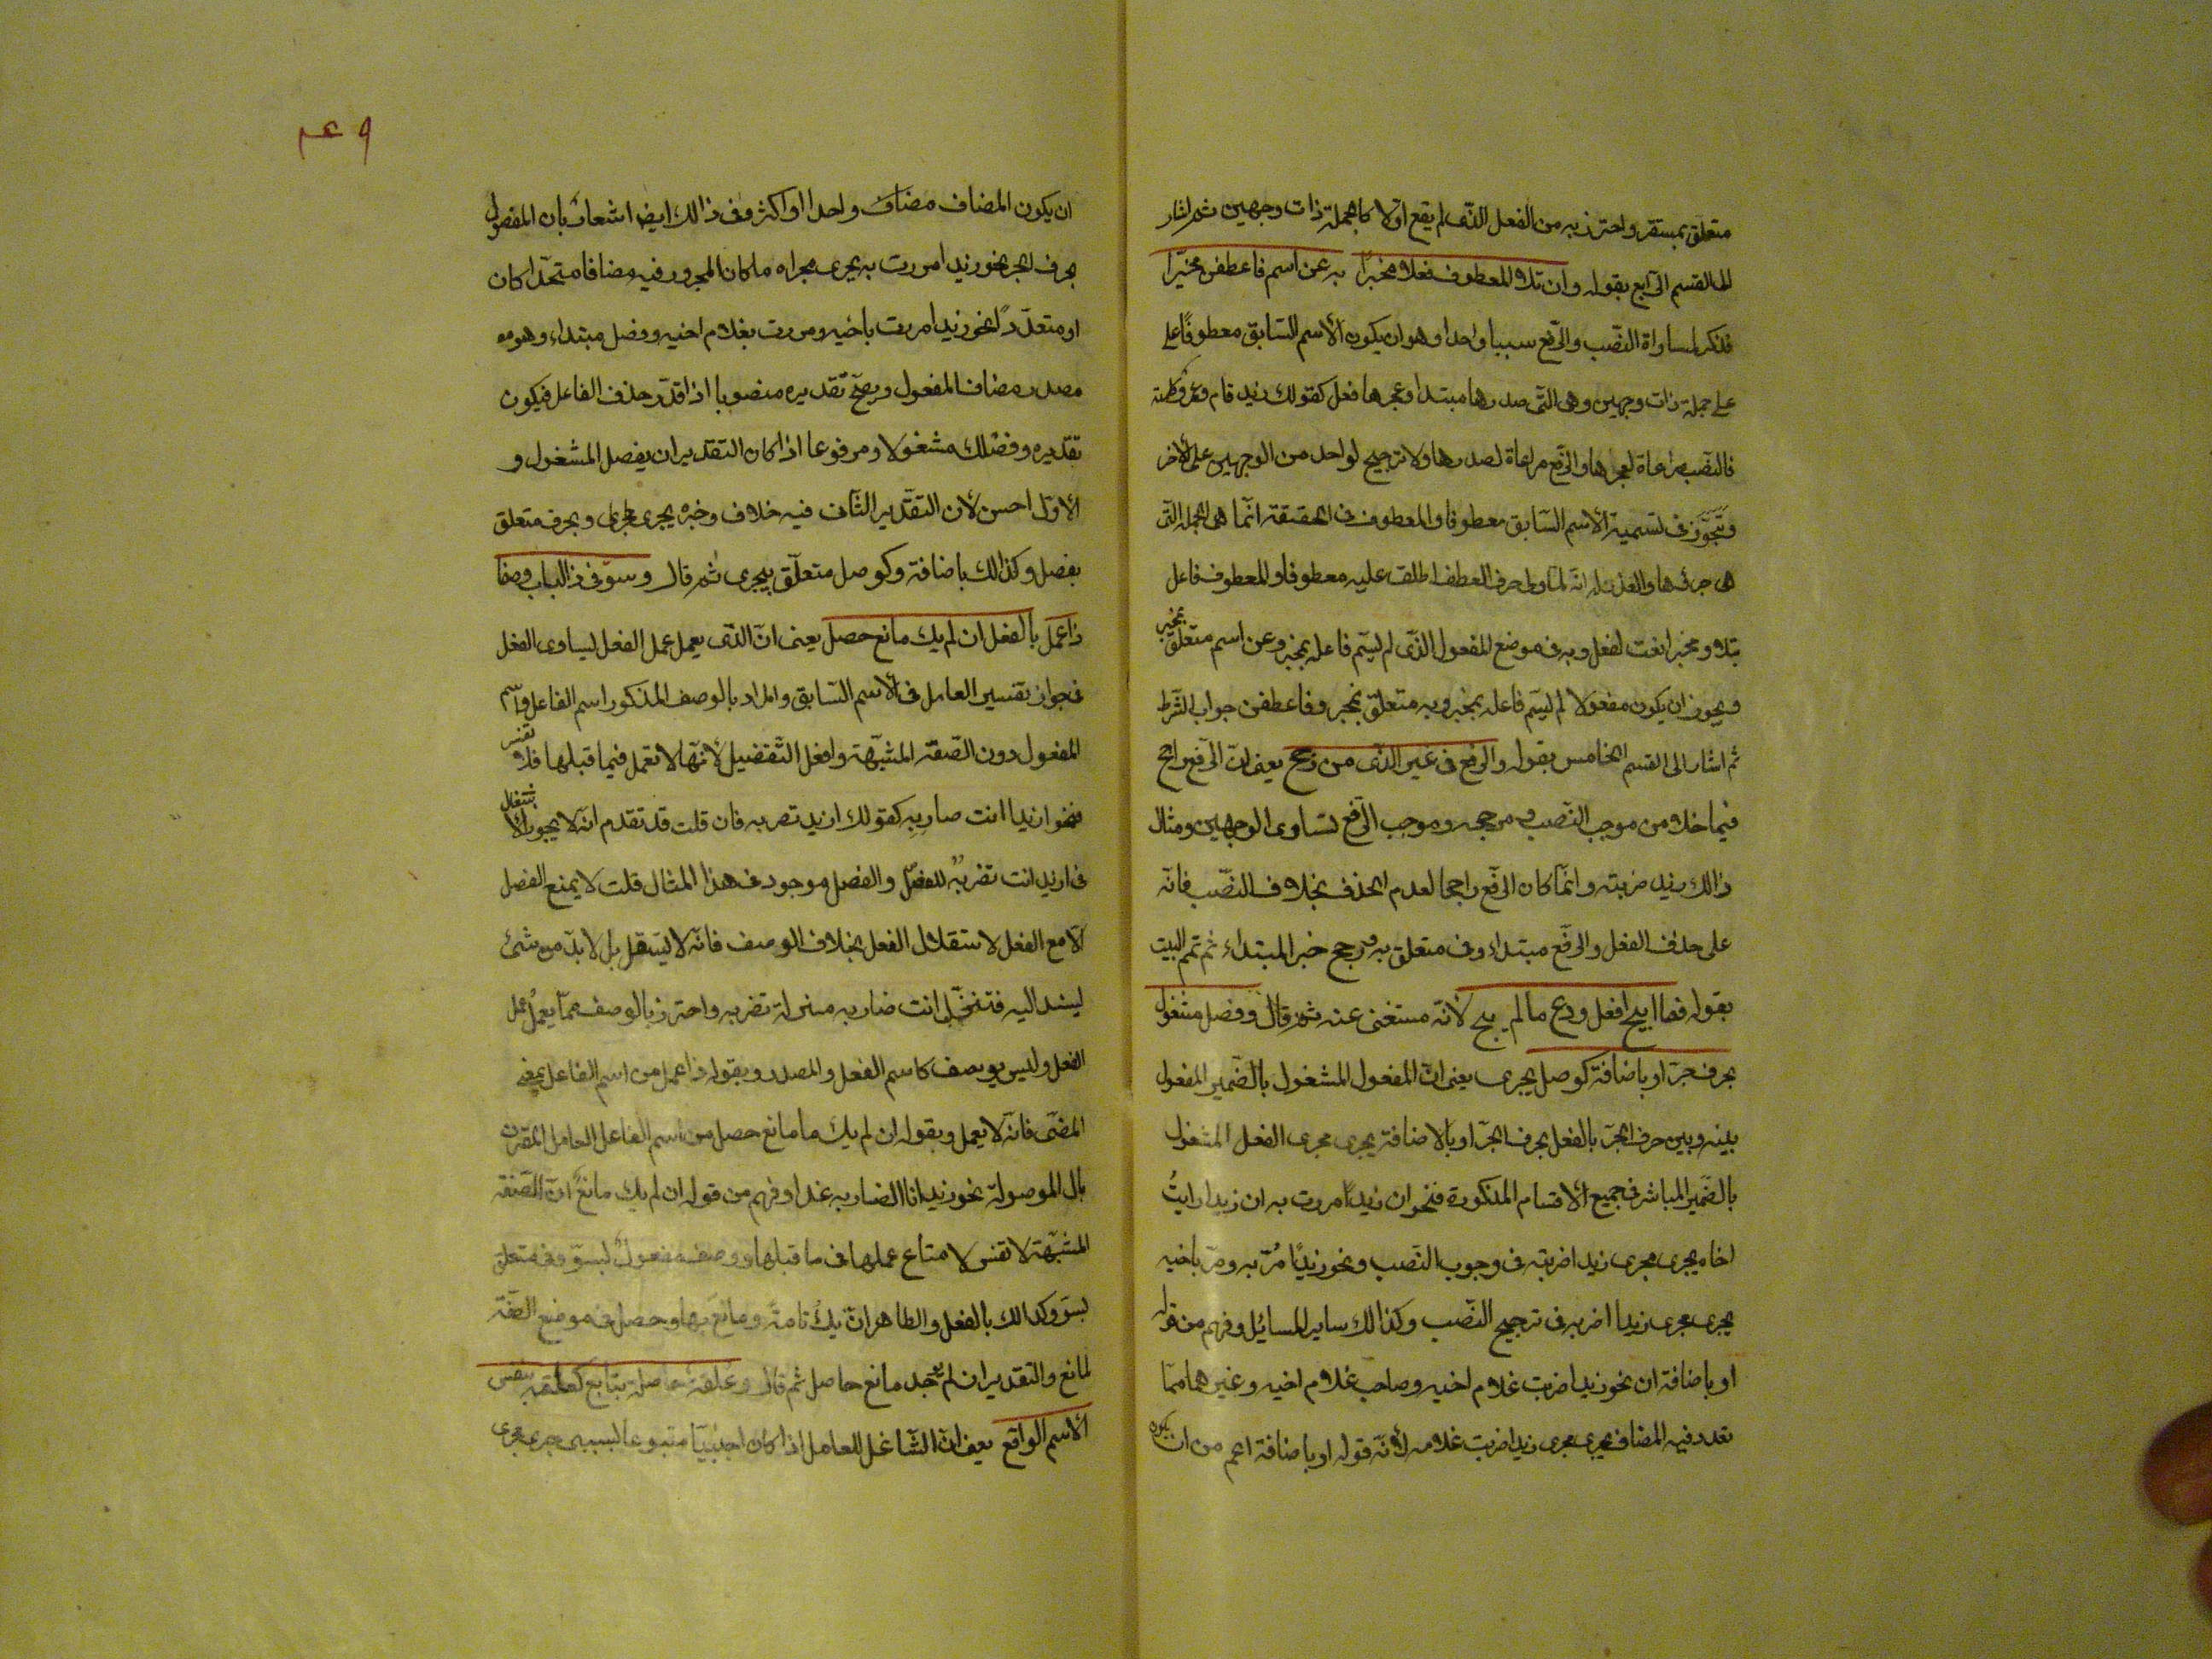 متعلق بمستقر واحترز به من الفعل الذى لم يقع اولا كالجملة ذات وجهين ثم اشار
الى القسم الرابع بقوله وان تلا المعطوف فعلا مخبرا به عن اسم فاعطفن مخيرا
فذكر لمساواة النصب والرفع سببا واحدا وهو ان يكون الاسم السابق معطوفا على
على جملة ذات وجهين وهى التى صدرها مبتدا وعجزها فعل كقولك زيد قام وعمرو كلمته
فالنصب مراعاة لعجزها والرفع مراعاة لصدرها ولا ترجيح لواحد من الوجهين على الاخر
وتجوز فى تسمية الاسم السابق معطوفا والمعطوف فى الحقيقة انما هى الجملة التى
هى جزئها والعذر له انه لما ولى حرف العطف اطلق عليه معطوفا والمعطوف فاعل
بتلا ومخبرا نعت لفعل وبه فى موضع المفعول الذى لم يسم فاعله بمخبر وعن اسم متعلق بمخبر
ويجوز ان يكون مفعولا لم يسم فاعله بمخبر وبه متعلق بمخبر وفاعطفن جواب الشرط
ثم اشار الى القسم الخامس بقوله والرفع فى غير الذى مر رجح يعنى ان الرفع راجح
فيما خلا من موجب النصب ومرجحه وموجب الرفع وتساوى الوجهين ومثال
ذالك زيد ضربته وانما كان الرفع راجحا لعدم الحذف بخلاف النصب فانه
على حذف الفعل والرفع مبتداء وفى متعلق به ورجح خبر المبتداء ثم تمم البيت
بقوله فما ابيح افعل ودع ما لم يبح لانه مستغنى عنه ثم قال وفصل مشغول
بحرف جر او باضافة كوصل يجرى يعنى ان المفعول المشغول بالضمير المفعول
بينه وبين حرف الجر بالفعل بحرف الجر او بالاضافة يجرى مجرى الفعل المشغول
بالضمير المباشر فى جميع الاقسام المذكورة فنحو ان زيدا مررت به ان زيدا رايت
اخاه يجرى مجرى زيدا ضربته فى وجوب النصب ونحو زيدا مر به ومر باخيه
يجرى مجرى زيدا اضربه فى ترجيح النصب وكذالك ساير المسائل وفهم من قوله
او باضافة ان نحو زيدا ضربت غلام اخيه وصاحب غلام اخيه وغيرهما مما
تعدد فيه المضاف يجرى مجرى زيدا ضربت غلامه لانه قوله او باضافة اعم من ان يكون
٤٩
ان يكون المضاف مضاف واحدا او اكثر وفى ذالك ايضا اشعار بان المفصول
بحرف الجر نحو زيدا مررت به يجرى مجراه ما كان المجرور فيه مضافا متحدا كان
او متعددا نحو زيدا مررت باخيه ومررت بغلام اخيه وفصل مبتداء وهو
مصدر مضاف المفعول ويصح تقديره منصوبا اذا قدر حذف الفاعل فيكون
تقديره وفصلك مشغولا ومرفوعا اذا كان التقدير ان يفصل المشغول و
الاول احسن لان التقدير الثانى فيه خلاف وخبره يجرى وبحرف متعلق
بفصل وكذالك باضافة وكوصل متعلق بيجرى ثم قال وسو فى ذا الباب وصفا
ذا عمل بالفعل ان لم يك مانع حصل يعنى ان الذى يعمل عمل الفعل يساوى الفعل
فى جواز تفسير العامل فى الاسم السابق والمراد بالوصف المذكور اسم الفاعل واسم
المفعول دون الصفة المشبهة وافعل التفضيل لانها لا تعمل فيما قبلها فلا تفسر
فنحو ازيدا انت ضاربه كقولك ازيد تضربه فان قلت قد تقدم انه لا يجوز الاشتغال
فى ازيد انت تضربه للفصل والفصل موجود فى هذا المثال قلت لا يمنع الفصل
الا مع الفعل لاستقلال الفعل بخلاف الوصف فانه لا يستقل بل لا بد من شئ
يسند اليه فتنزل انت ضاربه منزلة تضربه واحترز بالوصف عما يعمل عمل
الفعل وليس بوصف كاسم الفعل والمصدر وبقوله ذا عمل من اسم الفاعل بمعنى
المضى فانه لا يعمل وبقوله ان لم يك ما مانع حصل من اسم الفاعل العامل المقترن
بال الموصولة نحو زيد انا الضاربه غدا وفهم من قوله ان لم يك مانع ان الصفة
المشبهة لا تفسر لامتناع عملها فى ما قبلها ووصف مفعول بسو وفى متعلق
بسو وكذالك بالفعل والظاهر ان يك تامة ومانع بها وحصل فى موضع الصفة
لمانع والتقدير ان لم يوجد مانع حاصل ثم قال وعلقة حاصلة بتابع كعلقة بنفس
الاسم الواقع يعنى ان الشاغل للعامل اذا كان اجنبيا متبوعا بسببى جرى مجرى